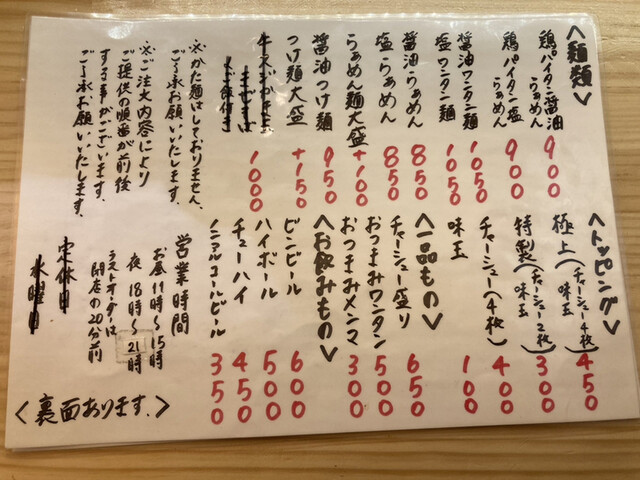 ＜麺類＞
鶏パイタン醤油らぁめん 900
鶏パイタン塩らぁめん 900
醤油ワンタン麺 1050
塩ワンタン麺 1050
醤油らぁめん 850
塩らぁめん 850
らぁめん麺大盛 +100
醤油つけ麺 950
つけ麺大盛 +150
1000
※かた麺はしておりません。
ご了承お願いいたします。
※ご注文内容により
ご提供の順番が前後
する事がございます。
ご了承お願いいたします。
＜トッピング＞
極上(チャーシュー4枚 味玉) 450
特製(チャーシュー2枚 味玉) 300
チャーシュー(4枚) 400
味玉 100
＜一品もの＞
チャーシュー盛り 650
おつまみワンタン 500
おつまみメンマ 300
＜お飲みもの＞
ビンビール 600
ハイボール 500
チューハイ 450
ノンアルコールビール 350
営業時間
お昼 11時〜15時
夜 18時〜21時
ラストオーダーは
閉店の20分前
定休日
水曜日
＜裏面あります。＞